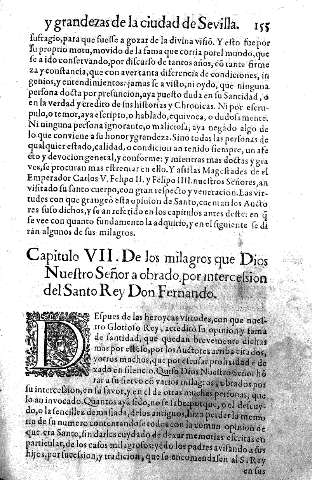 y grandezas de la ciudad de Sevilla. 155
sufragio, para que fuesse a gozar de la divina visiõ. Y esto fue por
su proprio motu, movido de la fama que corria por el mundo, que
se a ido conservando, por discurso de tantos años, cõ tanta firme
za y constancia, que con aver tanta diferencia de condiciones, in
genios, y entendimientos; jamas se a visto, ni oydo, que ninguna
persona docta por presuncion, aya puesto duda en su Santidad, o
en la verdad y credito de sus historias y Chronicas. Ni por exem-
plo, o temor, aya escripto, o hablado, equivoca, o dudosamente.
Ni ninguna persona ignorante, o maliciosa, aya negado algo de
lo que convienne a su honor y grandeza. Sino todas las personas de
qualquier estado, calidad, o condicion an tenido siempre, un afe
cto y devocion general, y conforme: y mientras mas doctas y gra
ves, se procuran mas estremar en ello. Y assi las Magestades de el
Emperador Carlos V. Felipo II. y Felipo III. nuestros Señores, an
visitado su santo cuerpo, con gran respecto y veneracion. Las vir-
tudes con que grangeò esta opinion de Santo, cuentan los Aucto
res suso dichos, y se an referido en los capitulos antes deste: en q̃
se vee con quanto fundamento la adquirio, y en el siguiente se di
ran algunos de sus milagros.
Capitulo VII. De los milagros que Dios
Nuestro Señor a obrado, por intercession
del Santo Rey Don Fernando.
DEspues de las heroycas virtudes, con que nues-
tro Glorioso Rey, acreditò su opinion y fama
de santidad, que quedan brevemente dichas
mas por estenso, por los Auctores arriba citados,
y otros muchos, que por escusar prolixidad e de
xado en silencio. Quiso Dios Nuestro Señor hõ
rar a su siervo cõ varios milagros, obrados por
su intercession, en su favor, y en el de otras muchas personas, que
lo an invocado. Quantos aya sido, no se sabe por que, o el descuy-
do, o la sencillez demasiada, de los antiguos, hizo perder la memo
ria de su numero contentandose todos con la comun opinion de
que era Santo, sin darles cuydado de dexar memorias escritas en
particular, de los casos milagrosos: y é de los padres avisando a sus
hijos, por sucession, y tradicion, que se encomendasen al S. Rey
en sus